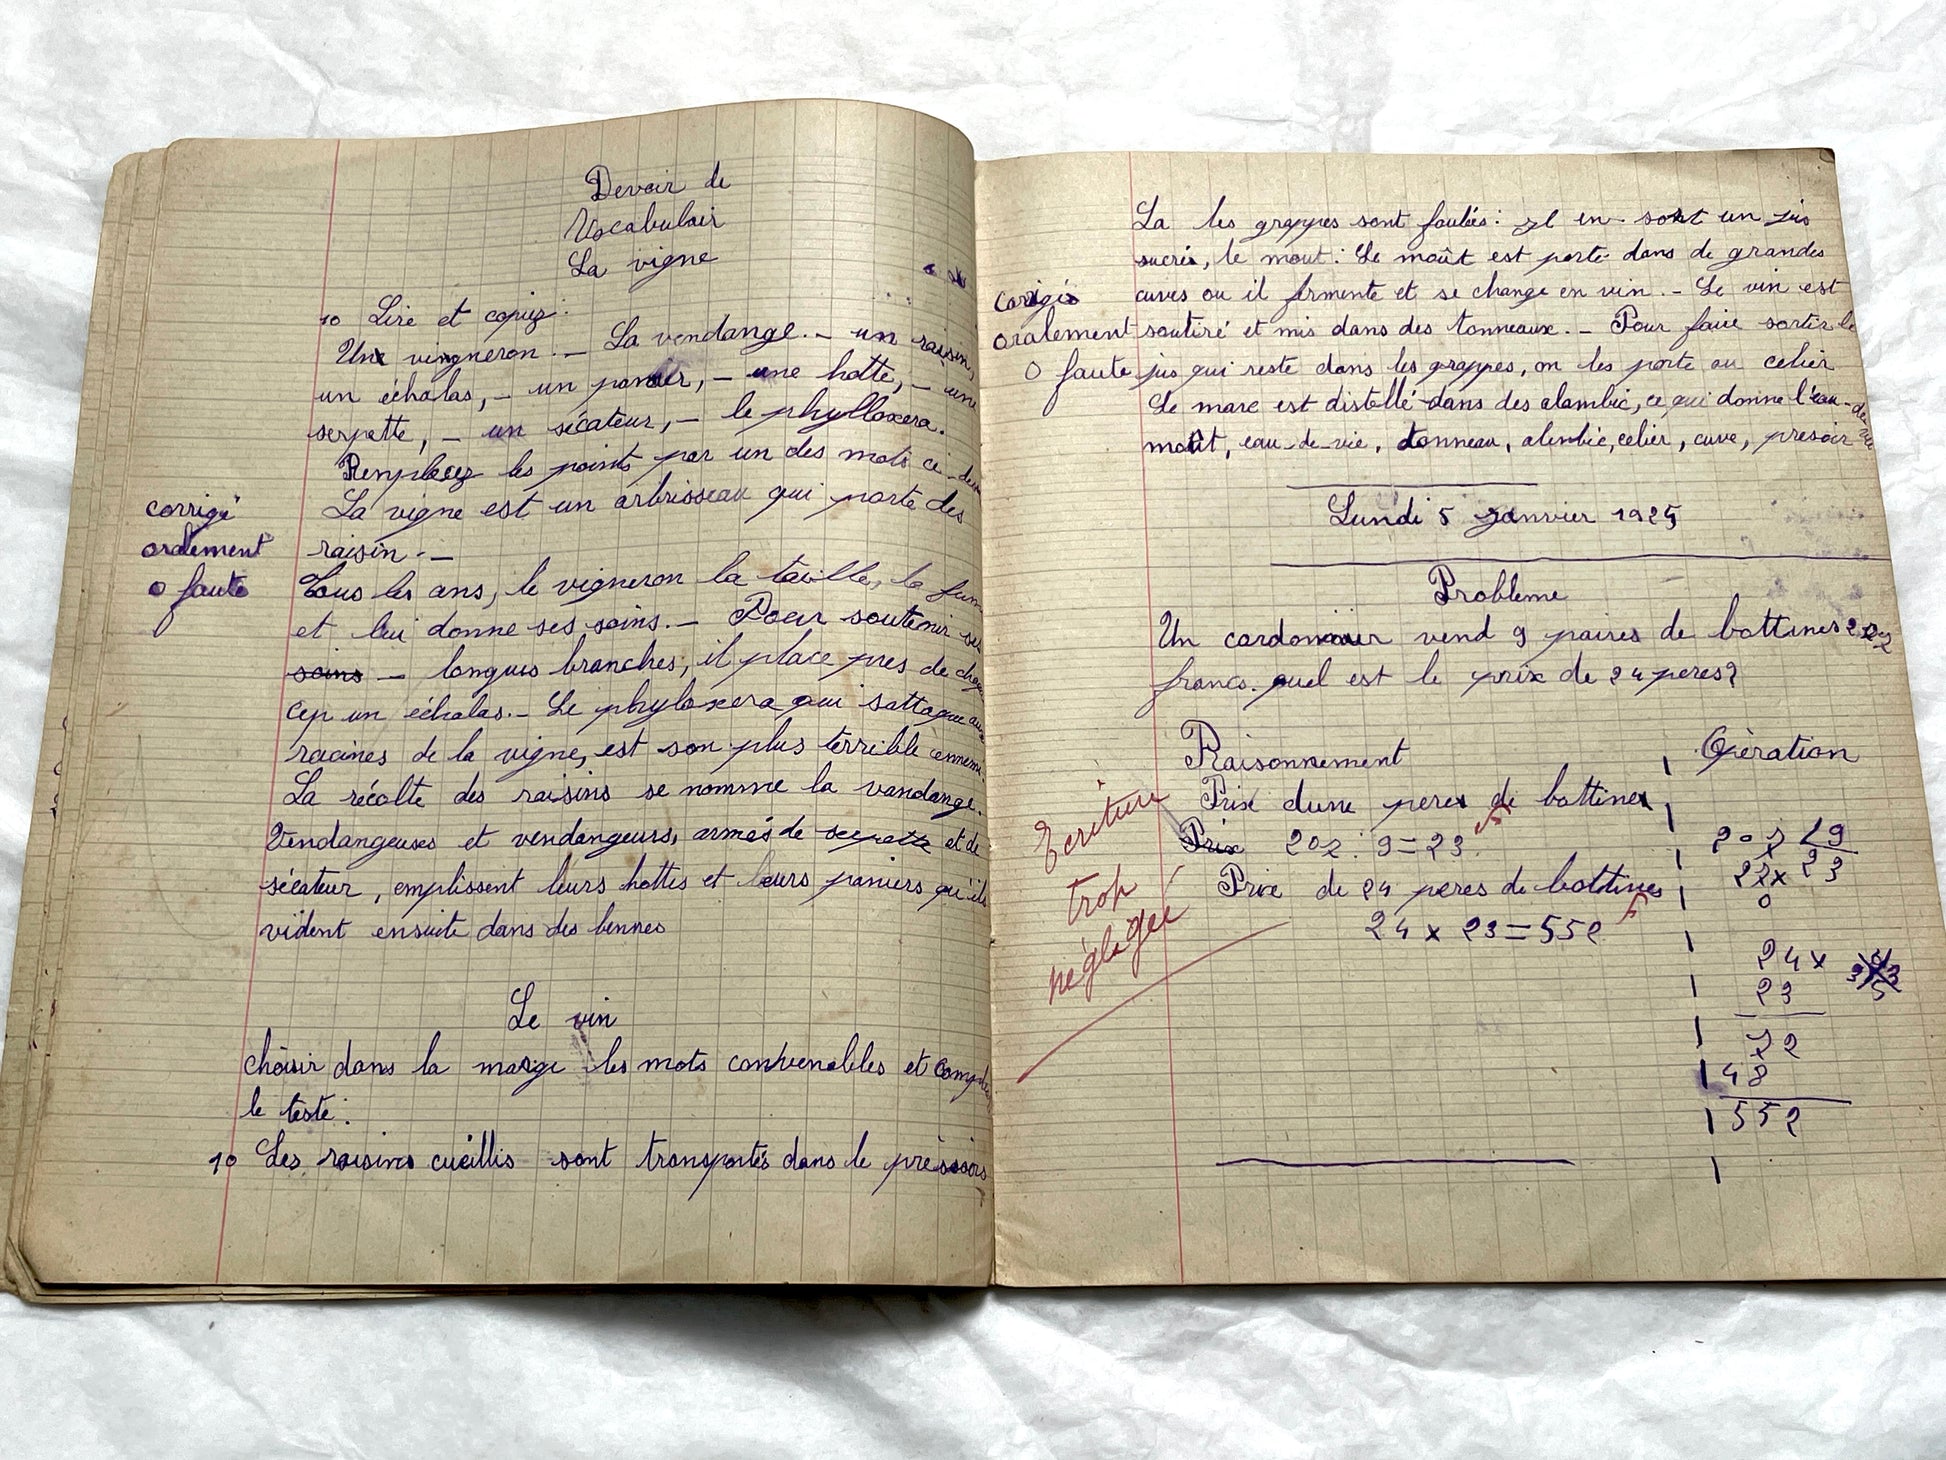 Devoir de
Vocabulair
La vigne
10 Lire et copiez:
Une vingneron. — La vendange. — un raisin,
un échalas, — un panier, — une hotte, — une
serpette, — un sécateur, — le phylloxera.
Remplacez les points par un des mots ci-dessus
La vigne est un arbrisseau qui porte des
corrigé
oralement
0 faute
raisin. —
Tous les ans, le vigneron la taille, la fume
et lui donne ses soins. — Pour soutenir ses
soins — longues branches, il place pres de chaque
cep un échalas. — Le phyloxera qui sattaque aux
racines de la vigne, est son plus terrible ennemi.
La récolte des raisins se nomme la vandange.
Vendangeuses et vendangeurs, armés de serpette et de
sécateur, emplissent leurs hottes et leurs paniers qu'ils
vident ensuite dans des bennes
Le vin
choisir dans la marge les mots convenables et
le texte:
10 Les raisins cueillis sont transportés dans le préssoirs
La les grappes sont foulées: Il en sort un jus
sucrés, le mout: Le moût est porté dans de grandes
cuves ou il fermente et se change en vin. — Le vin est
soutiré et mis dans des tonneaux. — Pour faire sortir le
jus qui reste dans les grappes, on les porte au celier
corrigés
oralement
0 faute
Le marc est distellé dans des alambic, ce qui donne l'eau-de-vie
moût, eau-de-vie, tonneau, alenbic, celier, cuve, presoir
Lundi 5 Janvier 1925
Probleme
Un cordonnier vend 9 paires de bottines 207
francs. quel est le prix de 24 peres?
Raisonnement
Prix dune peres de bottines
Prix 207 : 9 = 23
Prix de 24 peres de bottines
24 x 23 = 552
Ecriture
trop
négligée
Opération
207 9
27x 23
0
24 x
23
72
48
552